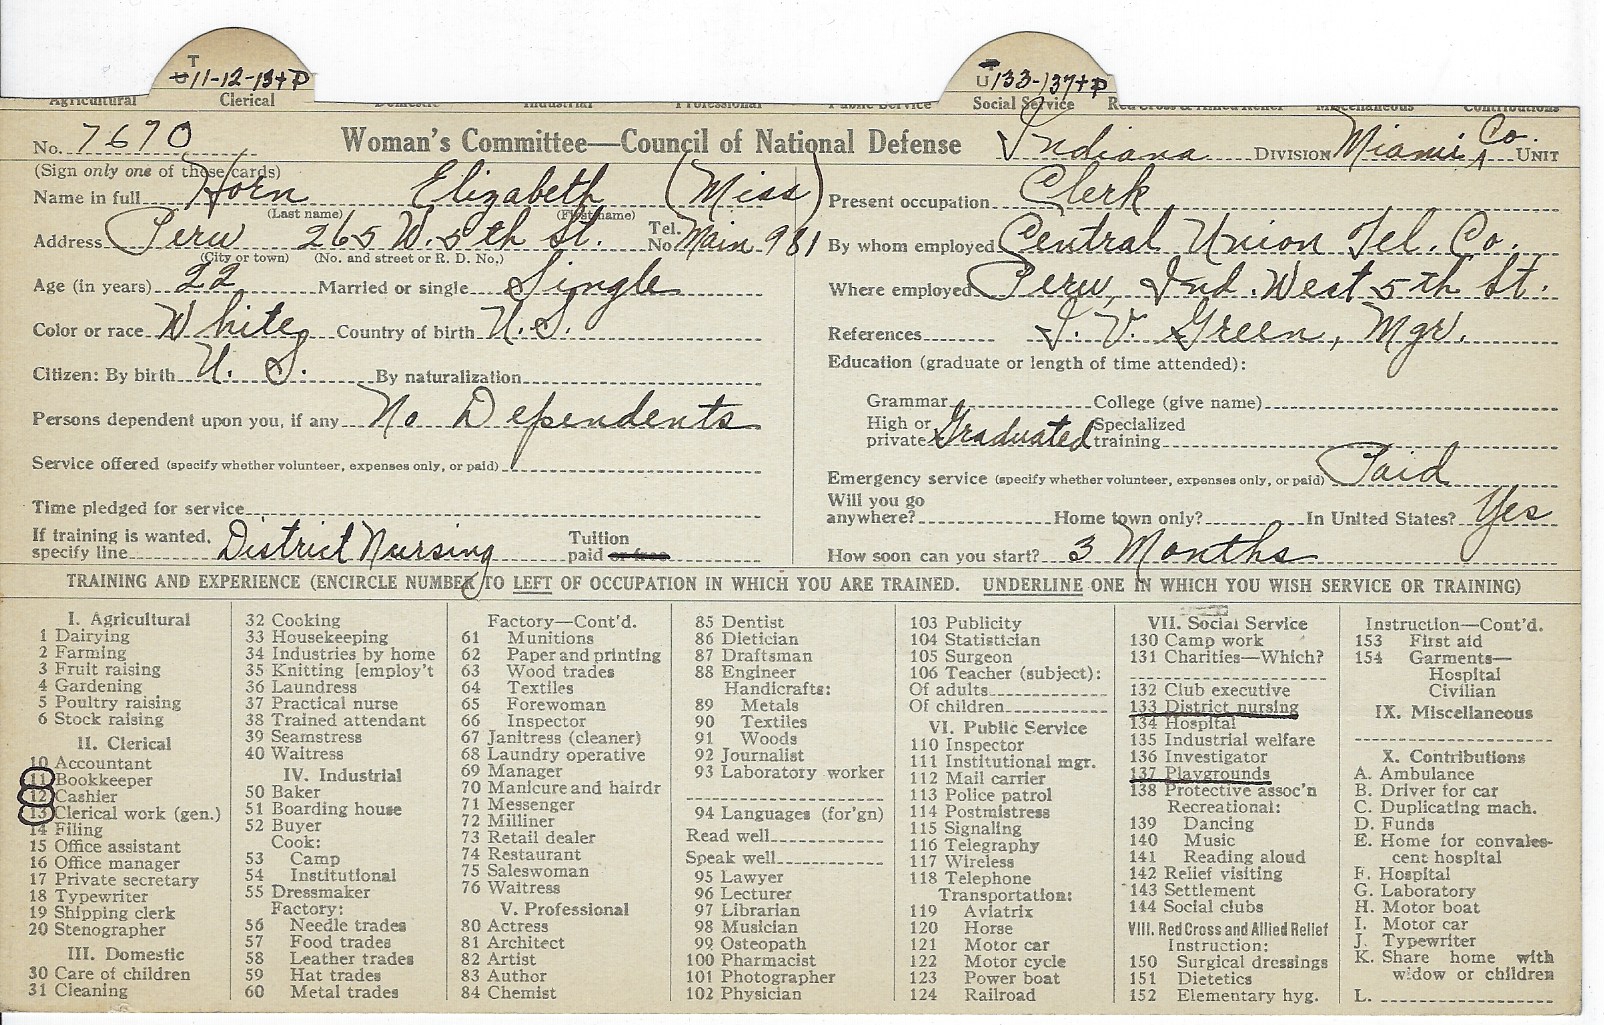 T 11-12-13+P
U 133-137+P
Agricultural Clerical Domestic Industrial Professional Public Service Social Service Red Cross & Allied Relief Miscellaneous Contributions
No. 7670 Woman's Committee—Council of National Defense Indiana DIVISION Miami Co. UNIT
(Sign only one of these cards)
Name in full Horn Elizabeth (Miss)
(Last name) (First name)
Address Peru 265 W. 5th St. Tel. No. Main 981
(City or town) (No. and street or R. D. No.)
Age (in years) 22 Married or single Single
Color or race White Country of birth U.S.
Citizen: By birth U. S. By naturalization
Persons dependent upon you, if any No Dependents
Service offered (specify whether volunteer, expenses only, or paid)
Time pledged for service
If training is wanted, specify line District Nursing Tuition paid or free
Present occupation Clerk
By whom employed Central Union Tel. Co.
Where employed Peru, Ind. West 5th St.
References J. V. Green, Mgr.
Education (graduate or length of time attended):
Grammar College (give name)
High or private Graduated Specialized training
Emergency service (specify whether volunteer, expenses only, or paid) Paid
Will you go anywhere? Home town only? In United States? Yes
How soon can you start? 3 Months
TRAINING AND EXPERIENCE (ENCIRCLE NUMBER TO LEFT OF OCCUPATION IN WHICH YOU ARE TRAINED. UNDERLINE ONE IN WHICH YOU WISH SERVICE OR TRAINING)
I. Agricultural
1 Dairying
2 Farming
3 Fruit raising
4 Gardening
5 Poultry raising
6 Stock raising
II. Clerical
10 Accountant
11 Bookkeeper
12 Cashier
13 Clerical work (gen.)
14 Filing
15 Office assistant
16 Office manager
17 Private secretary
18 Typewriter
19 Shipping clerk
20 Stenographer
III. Domestic
30 Care of children
31 Cleaning
32 Cooking
33 Housekeeping
34 Industries by home
35 Knitting [employ't
36 Laundress
37 Practical nurse
38 Trained attendant
39 Seamstress
40 Waitress
IV. Industrial
50 Baker
51 Boarding house
52 Buyer
Cook:
53 Camp
54 Institutional
55 Dressmaker
Factory:
56 Needle trades
57 Food trades
58 Leather trades
59 Hat trades
60 Metal trades
Factory—Cont'd.
61 Munitions
62 Paper and printing
63 Wood trades
64 Textiles
65 Forewoman
66 Inspector
67 Janitress (cleaner)
68 Laundry operative
69 Manager
70 Manicure and hairdr
71 Messenger
72 Milliner
73 Retail dealer
74 Restaurant
75 Saleswoman
76 Waitress
V. Professional
80 Actress
81 Architect
82 Artist
83 Author
84 Chemist
85 Dentist
86 Dietician
87 Draftsman
88 Engineer
Handicrafts:
89 Metals
90 Textiles
91 Woods
92 Journalist
93 Laboratory worker
94 Languages (for'gn)
Read well
Speak well
95 Lawyer
96 Lecturer
97 Librarian
98 Musician
99 Osteopath
100 Pharmacist
101 Photographer
102 Physician
103 Publicity
104 Statistician
105 Surgeon
106 Teacher (subject):
Of adults
Of children
VI. Public Service
110 Inspector
111 Institutional mgr.
112 Mail carrier
113 Police patrol
114 Postmistress
115 Signaling
116 Telegraphy
117 Wireless
118 Telephone
Transportation:
119 Aviatrix
120 Horse
121 Motor car
122 Motor cycle
123 Power boat
124 Railroad
VII. Social Service
130 Camp work
131 Charities—Which?
132 Club executive
133 District nursing
134 Hospital
135 Industrial welfare
136 Investigator
137 Playgrounds
138 Protective assoc'n
Recreational:
139 Dancing
140 Music
141 Reading aloud
142 Relief visiting
143 Settlement
144 Social clubs
VIII. Red Cross and Allied Relief
Instruction:
150 Surgical dressings
151 Dietetics
152 Elementary hyg.
Instruction—Cont'd.
153 First aid
154 Garments—
Hospital
Civilian
IX. Miscellaneous
X. Contributions
A. Ambulance
B. Driver for car
C. Duplicating mach.
D. Funds
E. Home for convales-
cent hospital
F. Hospital
G. Laboratory
H. Motor boat
I. Motor car
J. Typewriter
K. Share home with
widow or children
L.